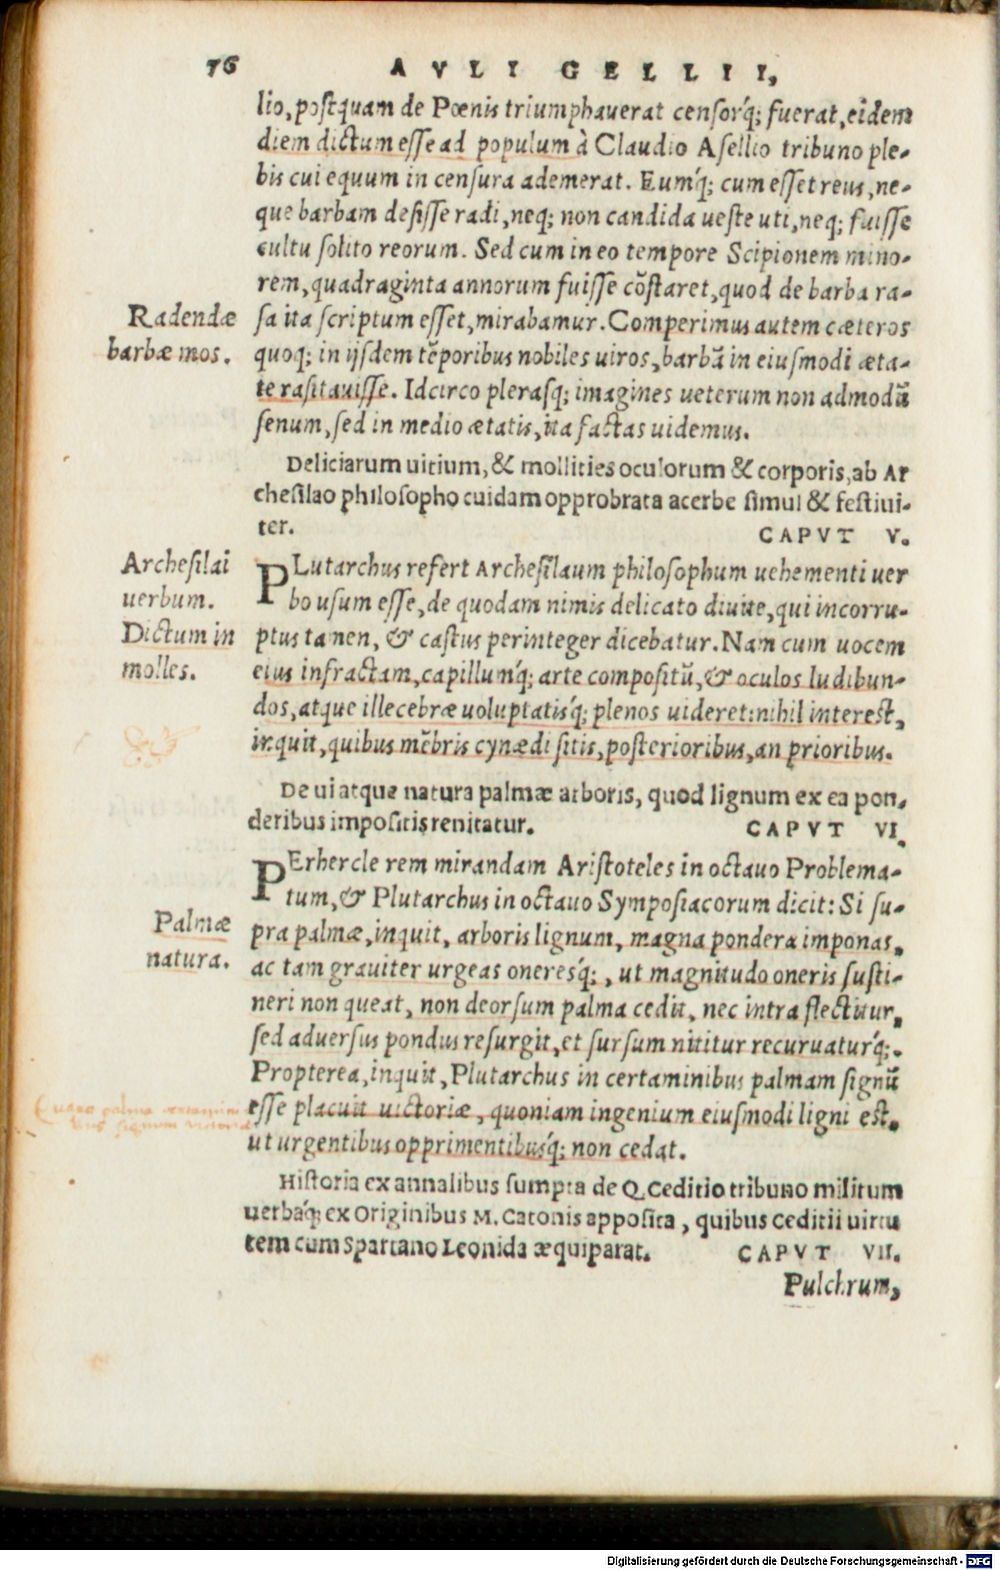 76 AVLI GELLII,
lio, postquam de Pœnis triumphauerat censorq́; fuerat, eidem
diem dictum esse ad populum à Claudio Asellio tribuno ple-
bis cui equum in censura ademerat. Eumq́; cum esset reus, ne-
que barbam desisse radi, neq; non candida ueste uti, neq; fuisse
cultu solito reorum. Sed cum in eo tempore Scipionem mino-
rem, quadraginta annorum fuisse cõstaret, quod de barba ra-
Radendæ
barbæ mos.
sa ita scriptum esset, mirabamur. Comperimus autem cæteros
quoq; in ijsdem tẽporibus nobiles uiros, barbã in eiusmodi æta-
te rasitauisse. Idcirco plerasq; imagines ueterum non admodũ
senum, sed in medio ætatis, ita factas uidemus.
Deliciarum uitium, & mollities oculorum & corporis, ab Ar
chesilao philosopho cuidam opprobrata acerbe simul & festiui-
ter. CAPVT V.
Archesilai
uerbum.
Dictum in
molles.
PLutarchus refert Archesilaum philosophum uehementi uer
bo usum esse, de quodam nimis delicato diuite, qui incorru-
ptus tamen, & castus perinteger dicebatur. Nam cum uocem
eius infractam, capillumq́; arte compositũ, & oculos ludibun-
dos, atque illecebræ uoluptatisq́; plenos uideret: nihil interest,
inquit, quibus mẽbris cynædi sitis, posterioribus, an prioribus.
De ui atque natura palmæ arboris, quod lignum ex ea pon-
deribus impositis renitatur. CAPVT VI.
PErhercle rem mirandam Aristoteles in octauo Problema-
tum, & Plutarchus in octauo Symposiacorum dicit: Si su-
Palmæ
natura.
pra palmæ, inquit, arboris lignum, magna pondera imponas,
ac tam grauiter urgeas oneresq́;, ut magnitudo oneris susti-
neri non queat, non deorsum palma cedit, nec intra flectitur,
sed aduersus pondus resurgit, et sursum nititur recuruaturq́;.
Propterea, inquit, Plutarchus in certaminibus palmam signũ
esse placuit uictoriæ, quoniam ingenium eiusmodi ligni est,
ut urgentibus opprimentibusq́; non cedat.
Historia ex annalibus sumpta de Q. Ceditio tribuno militum
uerbaq́; ex Originibus M. Catonis apposita, quibus Ceditii uirtu
tem cum Spartano Leonida æquiparat. CAPVT VII.
Pulchrum,
palma
signum
Digitalisierung gefördert durch die Deutsche Forschungsgemeinschaft - DFG